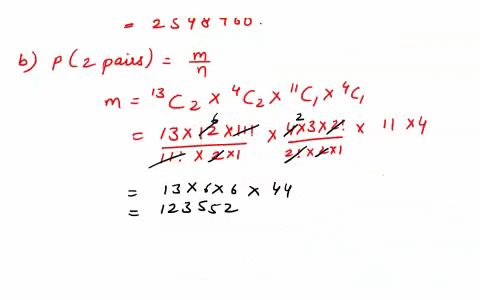 = 2598760.
b) P(2 pairs) = m/n
m = ¹³C₂ × ⁴C₂ × ¹¹C₁ × ⁴C₁
= 13×12×11!/11!×2×1 × 4×3×2!/2!×2×1 × 11 × 4
= 13×6×6 × 44
= 123552